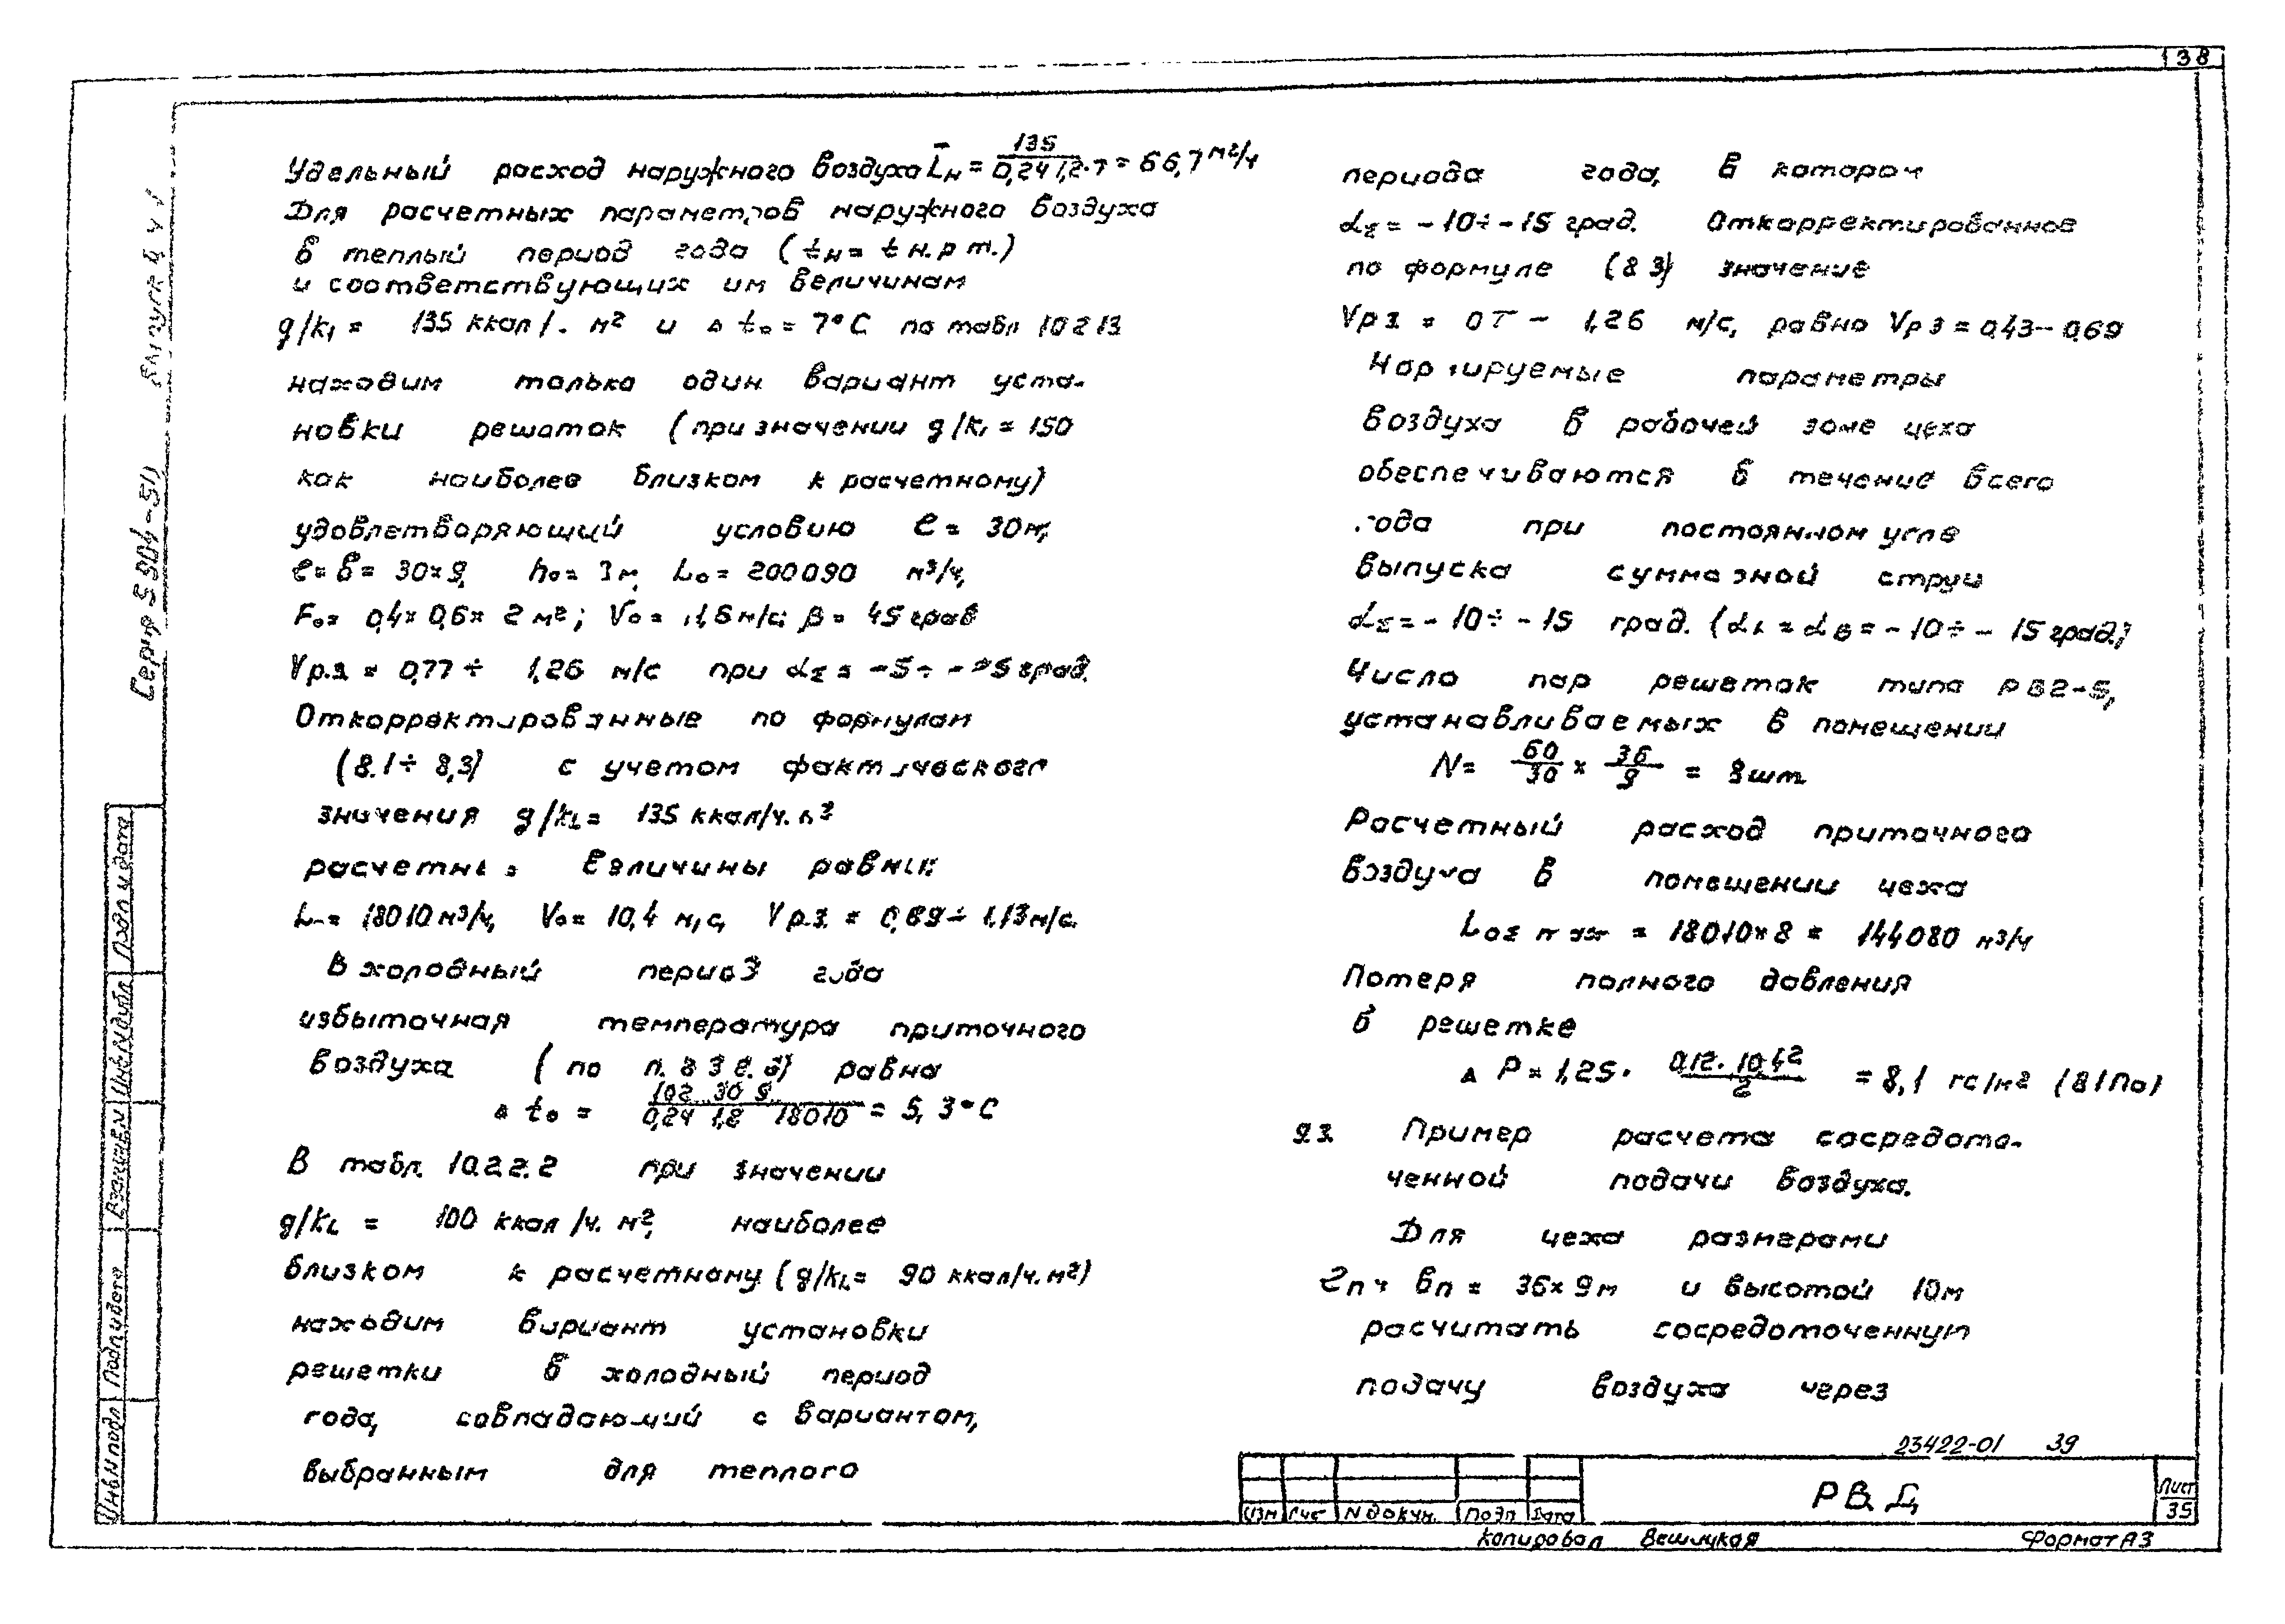 38
Удельный расход наружного воздуха L̄н = 135 / 0,24 1,2·7 = 66,7 м²/ч
Для расчетных параметров наружного воздуха
в теплый период года (tн = t н.р т.)
и соответствующих им величинам
g/k₁ = 135 ккал/. м² и Δtₒ = 7°С по табл 10 2 13
находим только один вариант уста-
новки решаток (при значении g/k₁ = 150
как наиболее близком к расчетному)
удовлетворяющий условию ℓ = 30м;
ℓ × в = 30×9, hₒ = 3 м, Lₒ = 200090 м³/ч,
Fₒ = 0,4×0,6× 2 м²; Vₒ = 11,6 м/с; β = 45 град
Vр.з = 0,77 ÷ 1,26 м/с при αΣ = -5 ÷ - 25 град.
Откорректированные по формулам
(8.1 ÷ 8,3) с учетом фактического
значения g/kL = 135 ккал/ч. м²
расчетные величины равны:
Lₒ = 18010 м³/ч, Vₒ = 10,4 м/с, Vр.з. = 0,69 ÷ 1,13 м/с.
В холодный период года
избыточная температура приточного
воздуха (по п. 8 3 2. б) равна
Δtₒ = 102 30 9 / 0,24 1,2 18010 = 5,3°С
В табл. 10.2.2.2 при значении
g/kL = 100 ккал/ч. м², наиболее
близком к расчетному (g/kL = 90 ккал/ч. м²)
находим вариант установки
решетки в холодный период
года, совпадающий с вариантом,
выбранным для теплого
периода года, в котором
αΣ = -10 ÷ -15 град. Откорректированное
по формуле (8 3) значение
Vр з = 0 7 - 1,26 м/с, равно Vр з = 0,43 - 0,69
Нормируемые параметры
воздуха в рабочей зоне цеха
обеспечиваются в течение всего
года при постоянном угле
выпуска суммарной струи
αΣ = -10 ÷ -15 град. (αА = αВ = -10 ÷ -15 град.)
Число пар решеток типа РВ2-5,
устанавливаемых в помещении
N = 60/30 × 36/9 = 8 шт
Расчетный расход приточного
воздуха в помещении цеха
LоΣ max = 18010×8 = 144080 м³/ч
Потеря полного давления
в решетке
ΔP = 1,25 · 0,12 · 10,4² / 2 = 8,1 гс/м² (81Па)
9.3. Пример расчета сосредото-
ченной подачи воздуха.
Для цеха размерами
ℓп × вп = 36×9м и высотой 10м
расчитать сосредоточенную
подачу воздуха через
23422-01 39
Изм Лист N докум. Подп Дата
РВ. Д
Лист
35
Копировал
Формат А3
Серия 5 904-50 Выпуск 4 ч 1
Инв N подл Подп и дата Взам инв N Инв N дубл Подп и дата